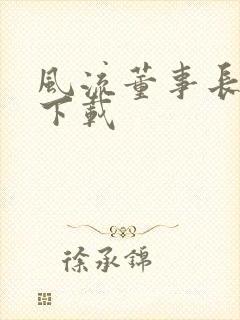 風流董事長
下載
徐承錦